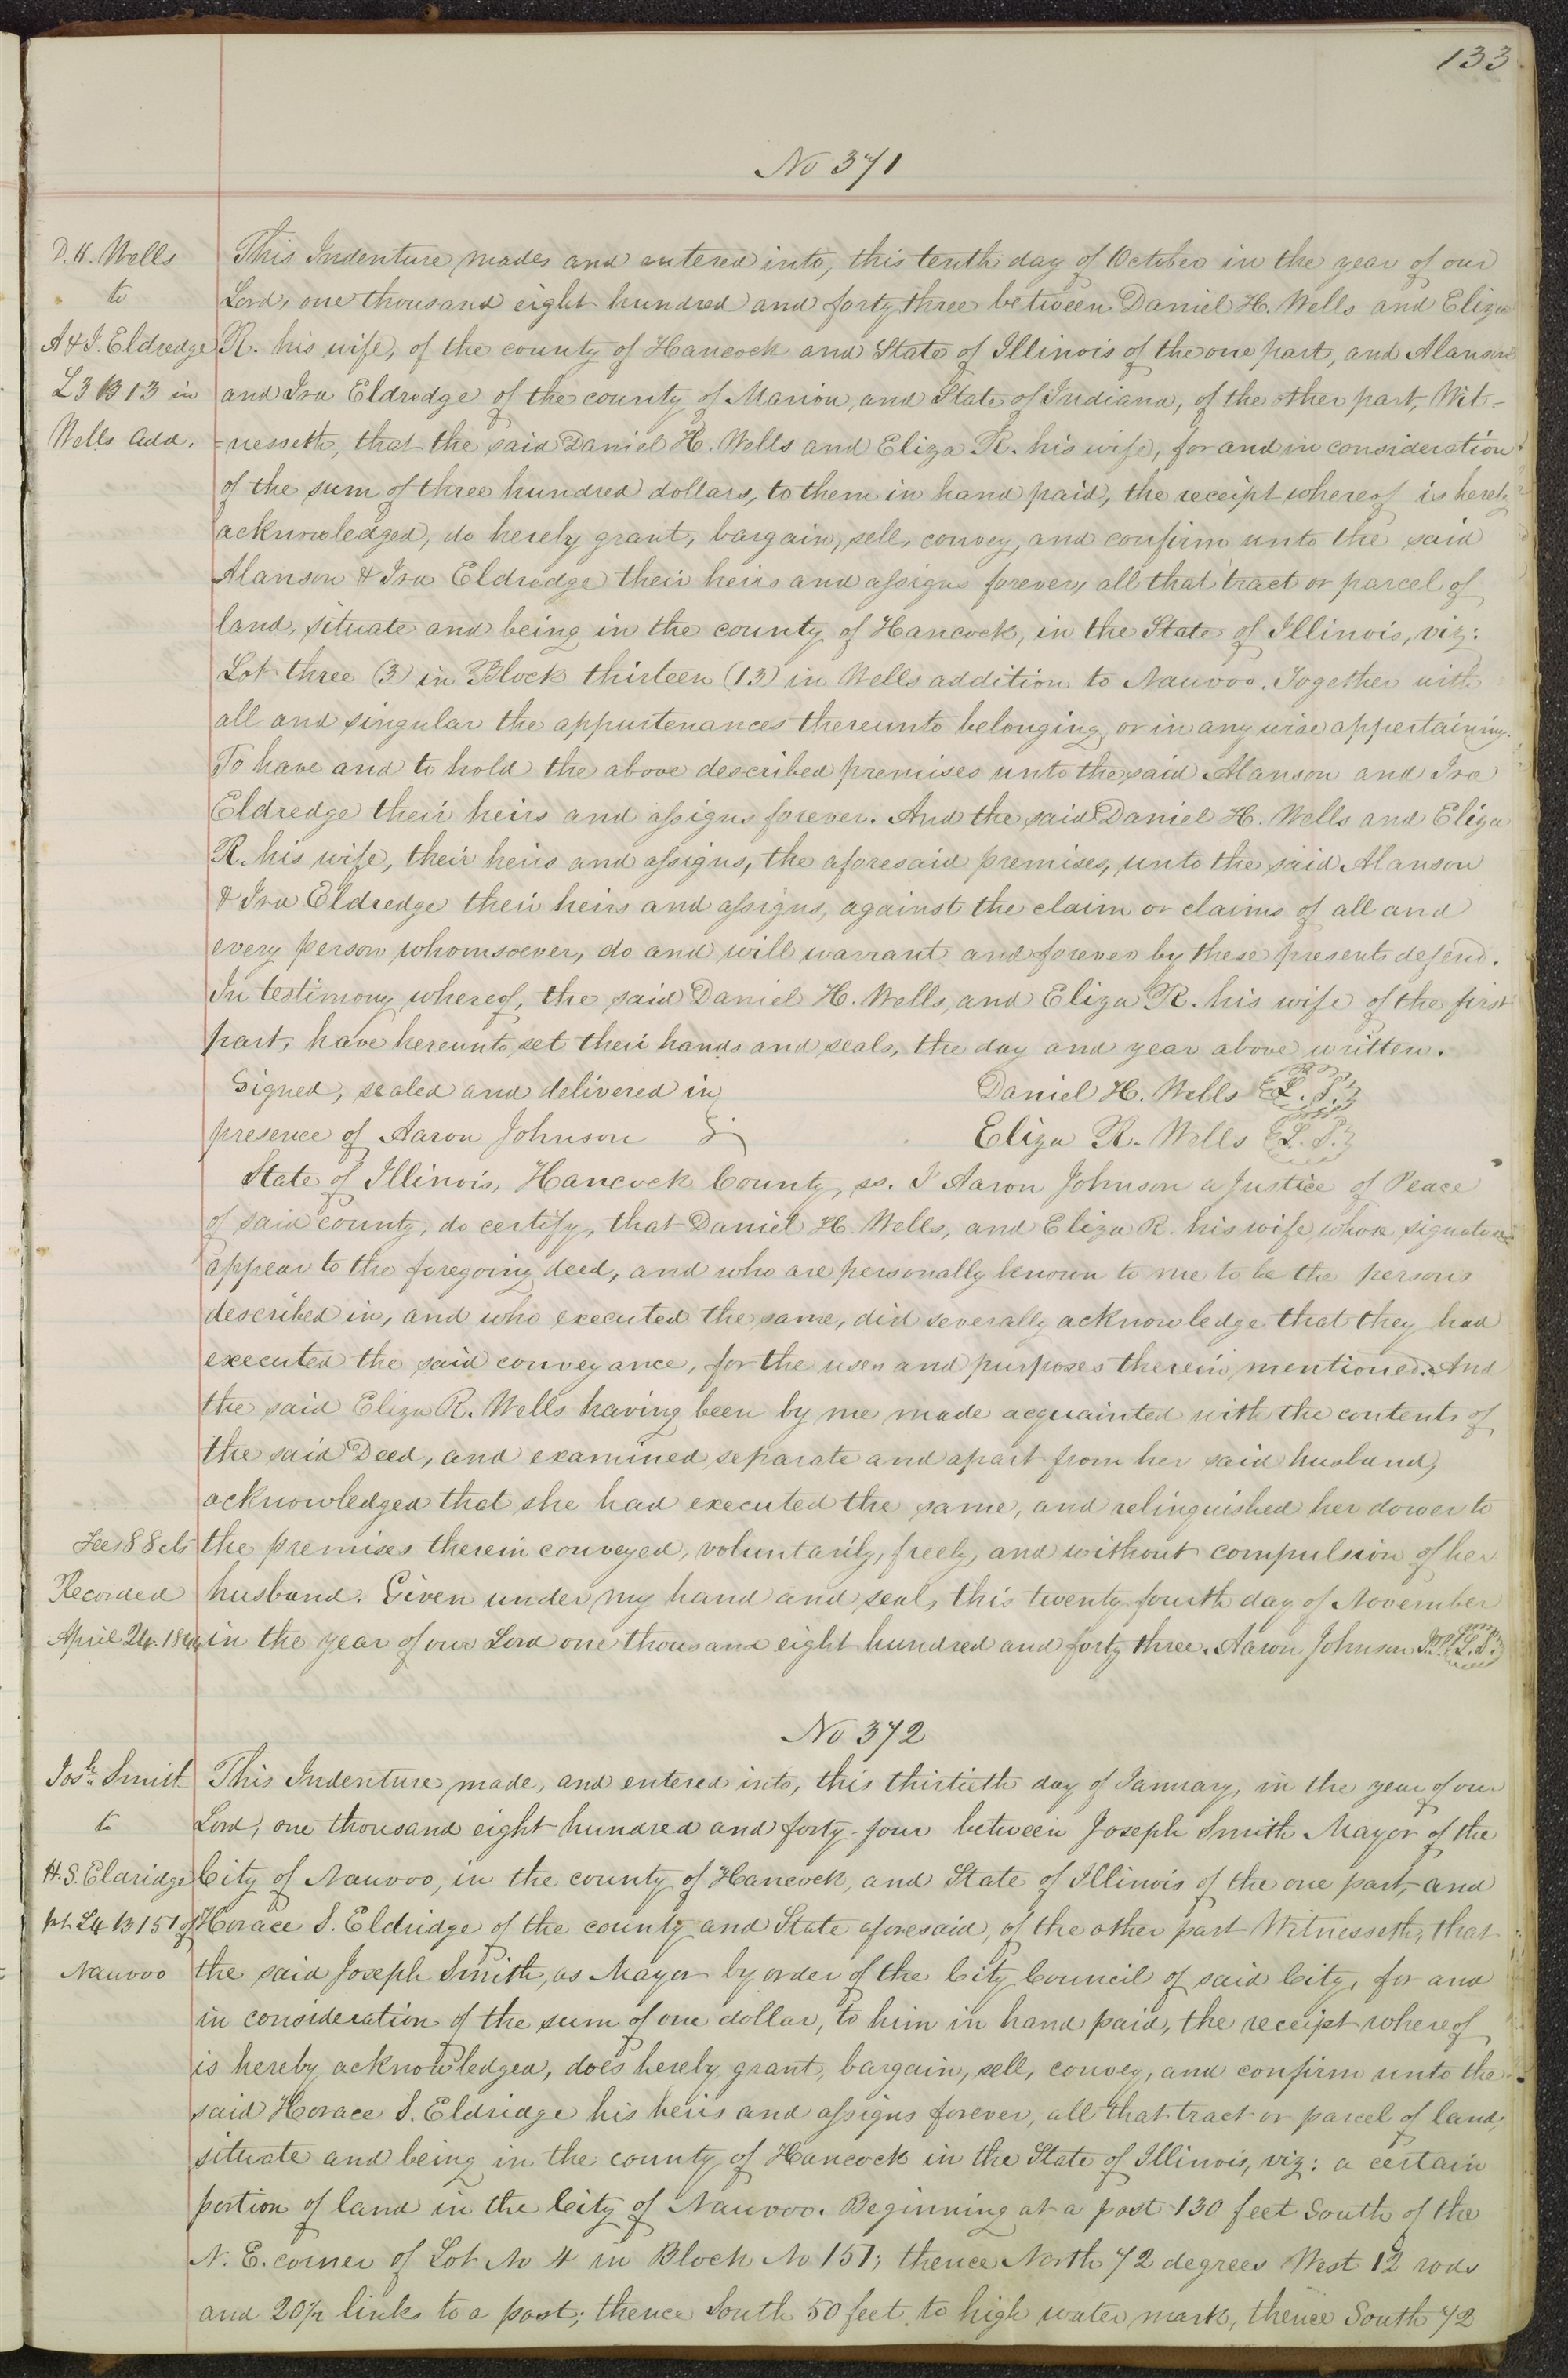 133
No 371
D. H. Wells
to
A & I. Eldredge
L 3 B 13 in
Wells Add.
This Indenture made and entered into, this tenth day of October in the year of our
Lord, one thousand eight hundred and forty three between Daniel H. Wells and Eliza
R. his wife, of the county of Hancock and State of Illinois of the one part, and Alanson
and Ira Eldredge of the county of Marion, and State of Indiana, of the other part, Wit-
-nesseth, that the said Daniel H. Wells and Eliza R. his wife, for and in consideration
of the sum of three hundred dollars, to them in hand paid, the receipt whereof is hereby
acknowledged, do hereby grant, bargain, sell, convey, and confirm unto the said
Alanson & Ira Eldredge their heirs and assigns forever, all that tract or parcel of
land, situate and being in the county of Hancock, in the State of Illinois, viz:
Lot three (3) in Block thirteen (13) in Wells addition to Nauvoo. Together with
all and singular the appurtenances thereunto belonging, or in any wise appertaining.
To have and to hold the above described premises unto the said Alanson and Ira
Eldredge their heirs and assigns forever. And the said Daniel H. Wells and Eliza
R. his wife, their heirs and assigns, the aforesaid premises, unto the said Alanson
& Ira Eldredge their heirs and assigns, against the claim or claims of all and
every person whomsoever, do and will warrant and forever by these presents defend.
In testimony whereof, the said Daniel H. Wells, and Eliza R. his wife of the first
part, have hereunto set their hands and seals, the day and year above written.
Signed, sealed and delivered in
presence of Aaron Johnson
Daniel H. Wells L. S.
Eliza R. Wells L. S.
State of Illinois, Hancock County, ss. I Aaron Johnson a Justice of Peace
of said county, do certify, that Daniel H. Wells, and Eliza R. his wife whose signatures
appear to the foregoing deed, and who are personally known to me to be the persons
described in, and who executed the same, did severally acknowledge that they had
executed the said conveyance, for the uses and purposes therein mentioned. And
the said Eliza R. Wells having been by me made acquainted with the contents of
the said Deed, and examined separate and apart from her said husband,
acknowledged that she had executed the same, and relinquished her dower to
the premises therein conveyed, voluntarily, freely, and without compulsion of her
husband. Given under my hand and seal, this twenty fourth day of November
in the year of our Lord one thousand eight hundred and forty three. Aaron Johnson J.P. L.S.
Fees 88 cts
Recorded
April 24. 1844
No 372
Josh. Smith
to
H. S. Eldridge
pt. L4 B 151 of
Nauvoo
This Indenture made, and entered into, this thirtieth day of January, in the year of our
Lord, one thousand eight hundred and forty-four between Joseph Smith Mayor of the
City of Nauvoo, in the county of Hancock, and State of Illinois of the one part, and
Horace S. Eldridge of the county and State aforesaid, of the other part Witnesseth, that
the said Joseph Smith, as Mayor by order of the City Council of said City, for and
in consideration of the sum of one dollar, to him in hand paid, the receipt whereof
is hereby acknowledged, does hereby grant, bargain, sell, convey, and confirm unto the
said Horace S. Eldridge his heirs and assigns forever, all that tract or parcel of land,
situate and being in the county of Hancock in the State of Illinois, viz: a certain
portion of land in the City of Nauvoo. Beginning at a post 130 feet South of the
N. E. corner of Lot No 4 in Block No 151; thence North 72 degrees West 12 rods
and 20 1/2 links to a post; thence South 50 feet to high water mark, thence South 72